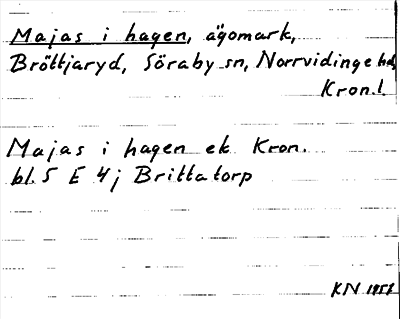 Majas i hagen, ägomark,
Bröttjaryd, Söraby sn, Norrvidinge hd,
Kron.l.
Majas i hagen ek Kron.
bl. 5 E 4j Brittatorp
KN 1958